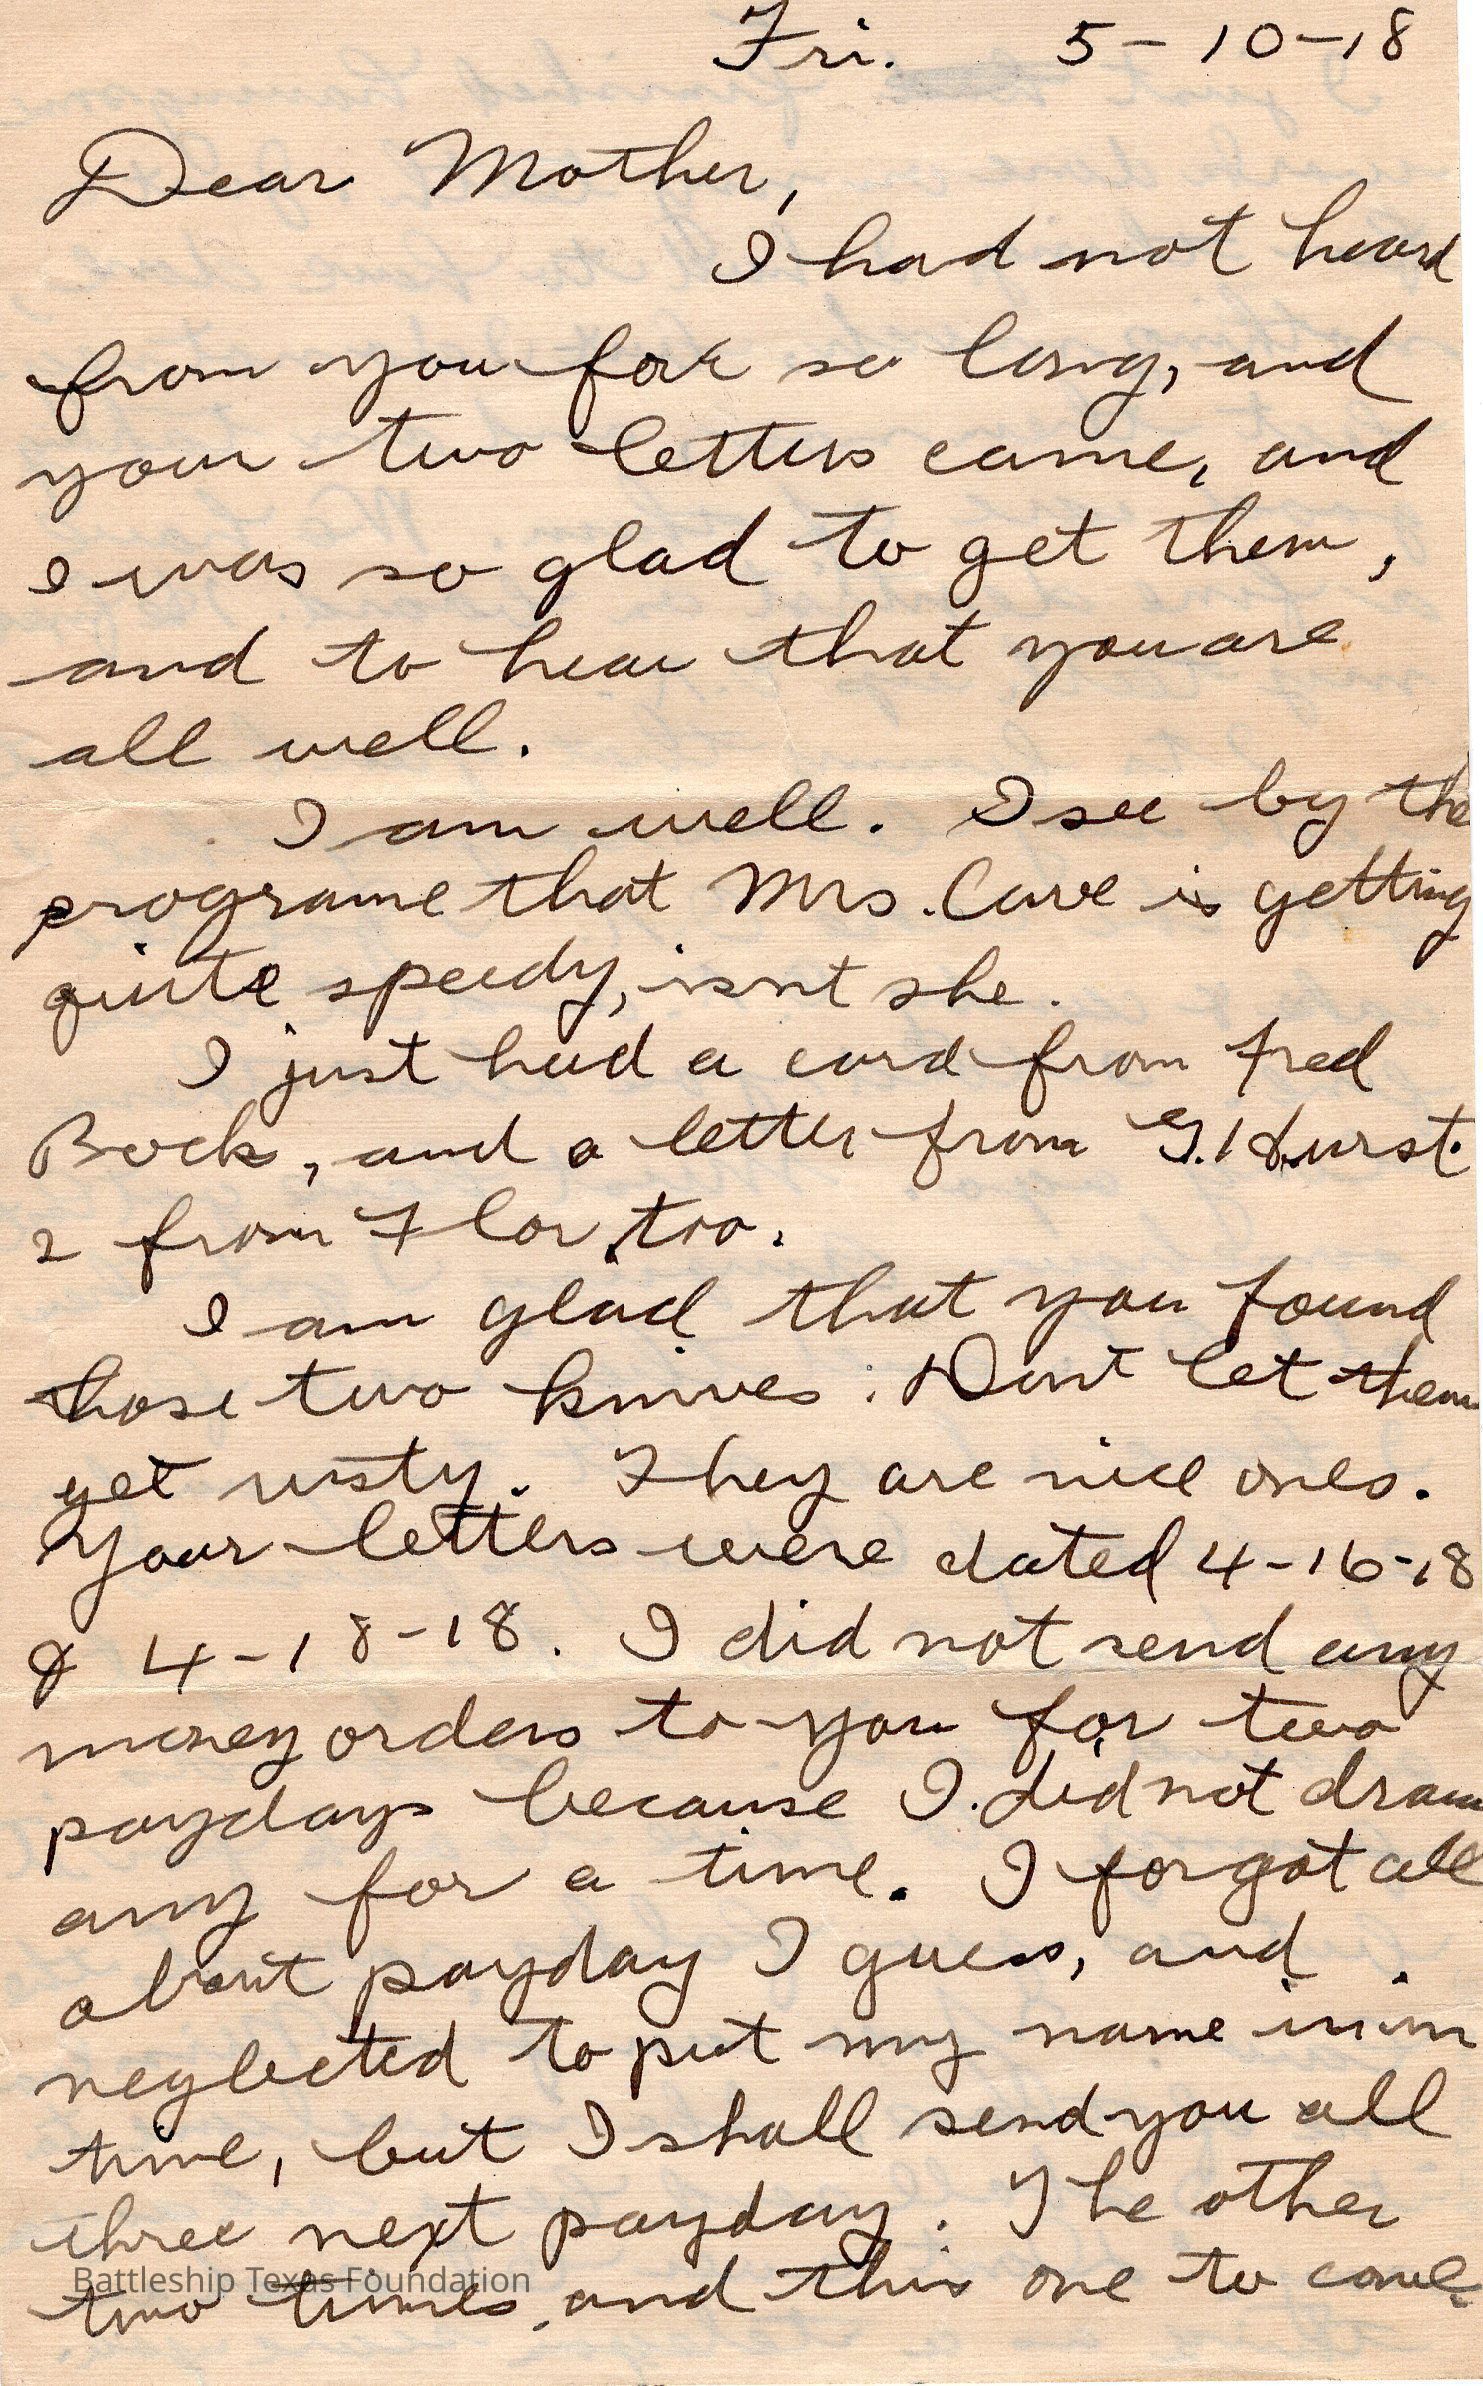 Fri. 5-10-18
Dear Mother,
I had not heard
from you for so long, and
your two letters came, and
I was so glad to get them,
and to hear that you are
all well.
I am well. I see by the
programe that Mrs. Cave is getting
quite speedy, isnt she.
I just had a card from Fred
Bock, and a letter from G. Hurst.
2 from Flor, too.
I am glad that you found
those two knives. Dont let them
get rusty. They are nice ones.
Your letters were dated 4-16-18
& 4-18-18. I did not send any
money orders to you for two
paydays because I did not draw
any for a time. I forgot all
about payday I guess, and
neglected to put my name in in
time, but I shall send you all
three next payday. The other
two times, and this one to come
Battleship Texas Foundation